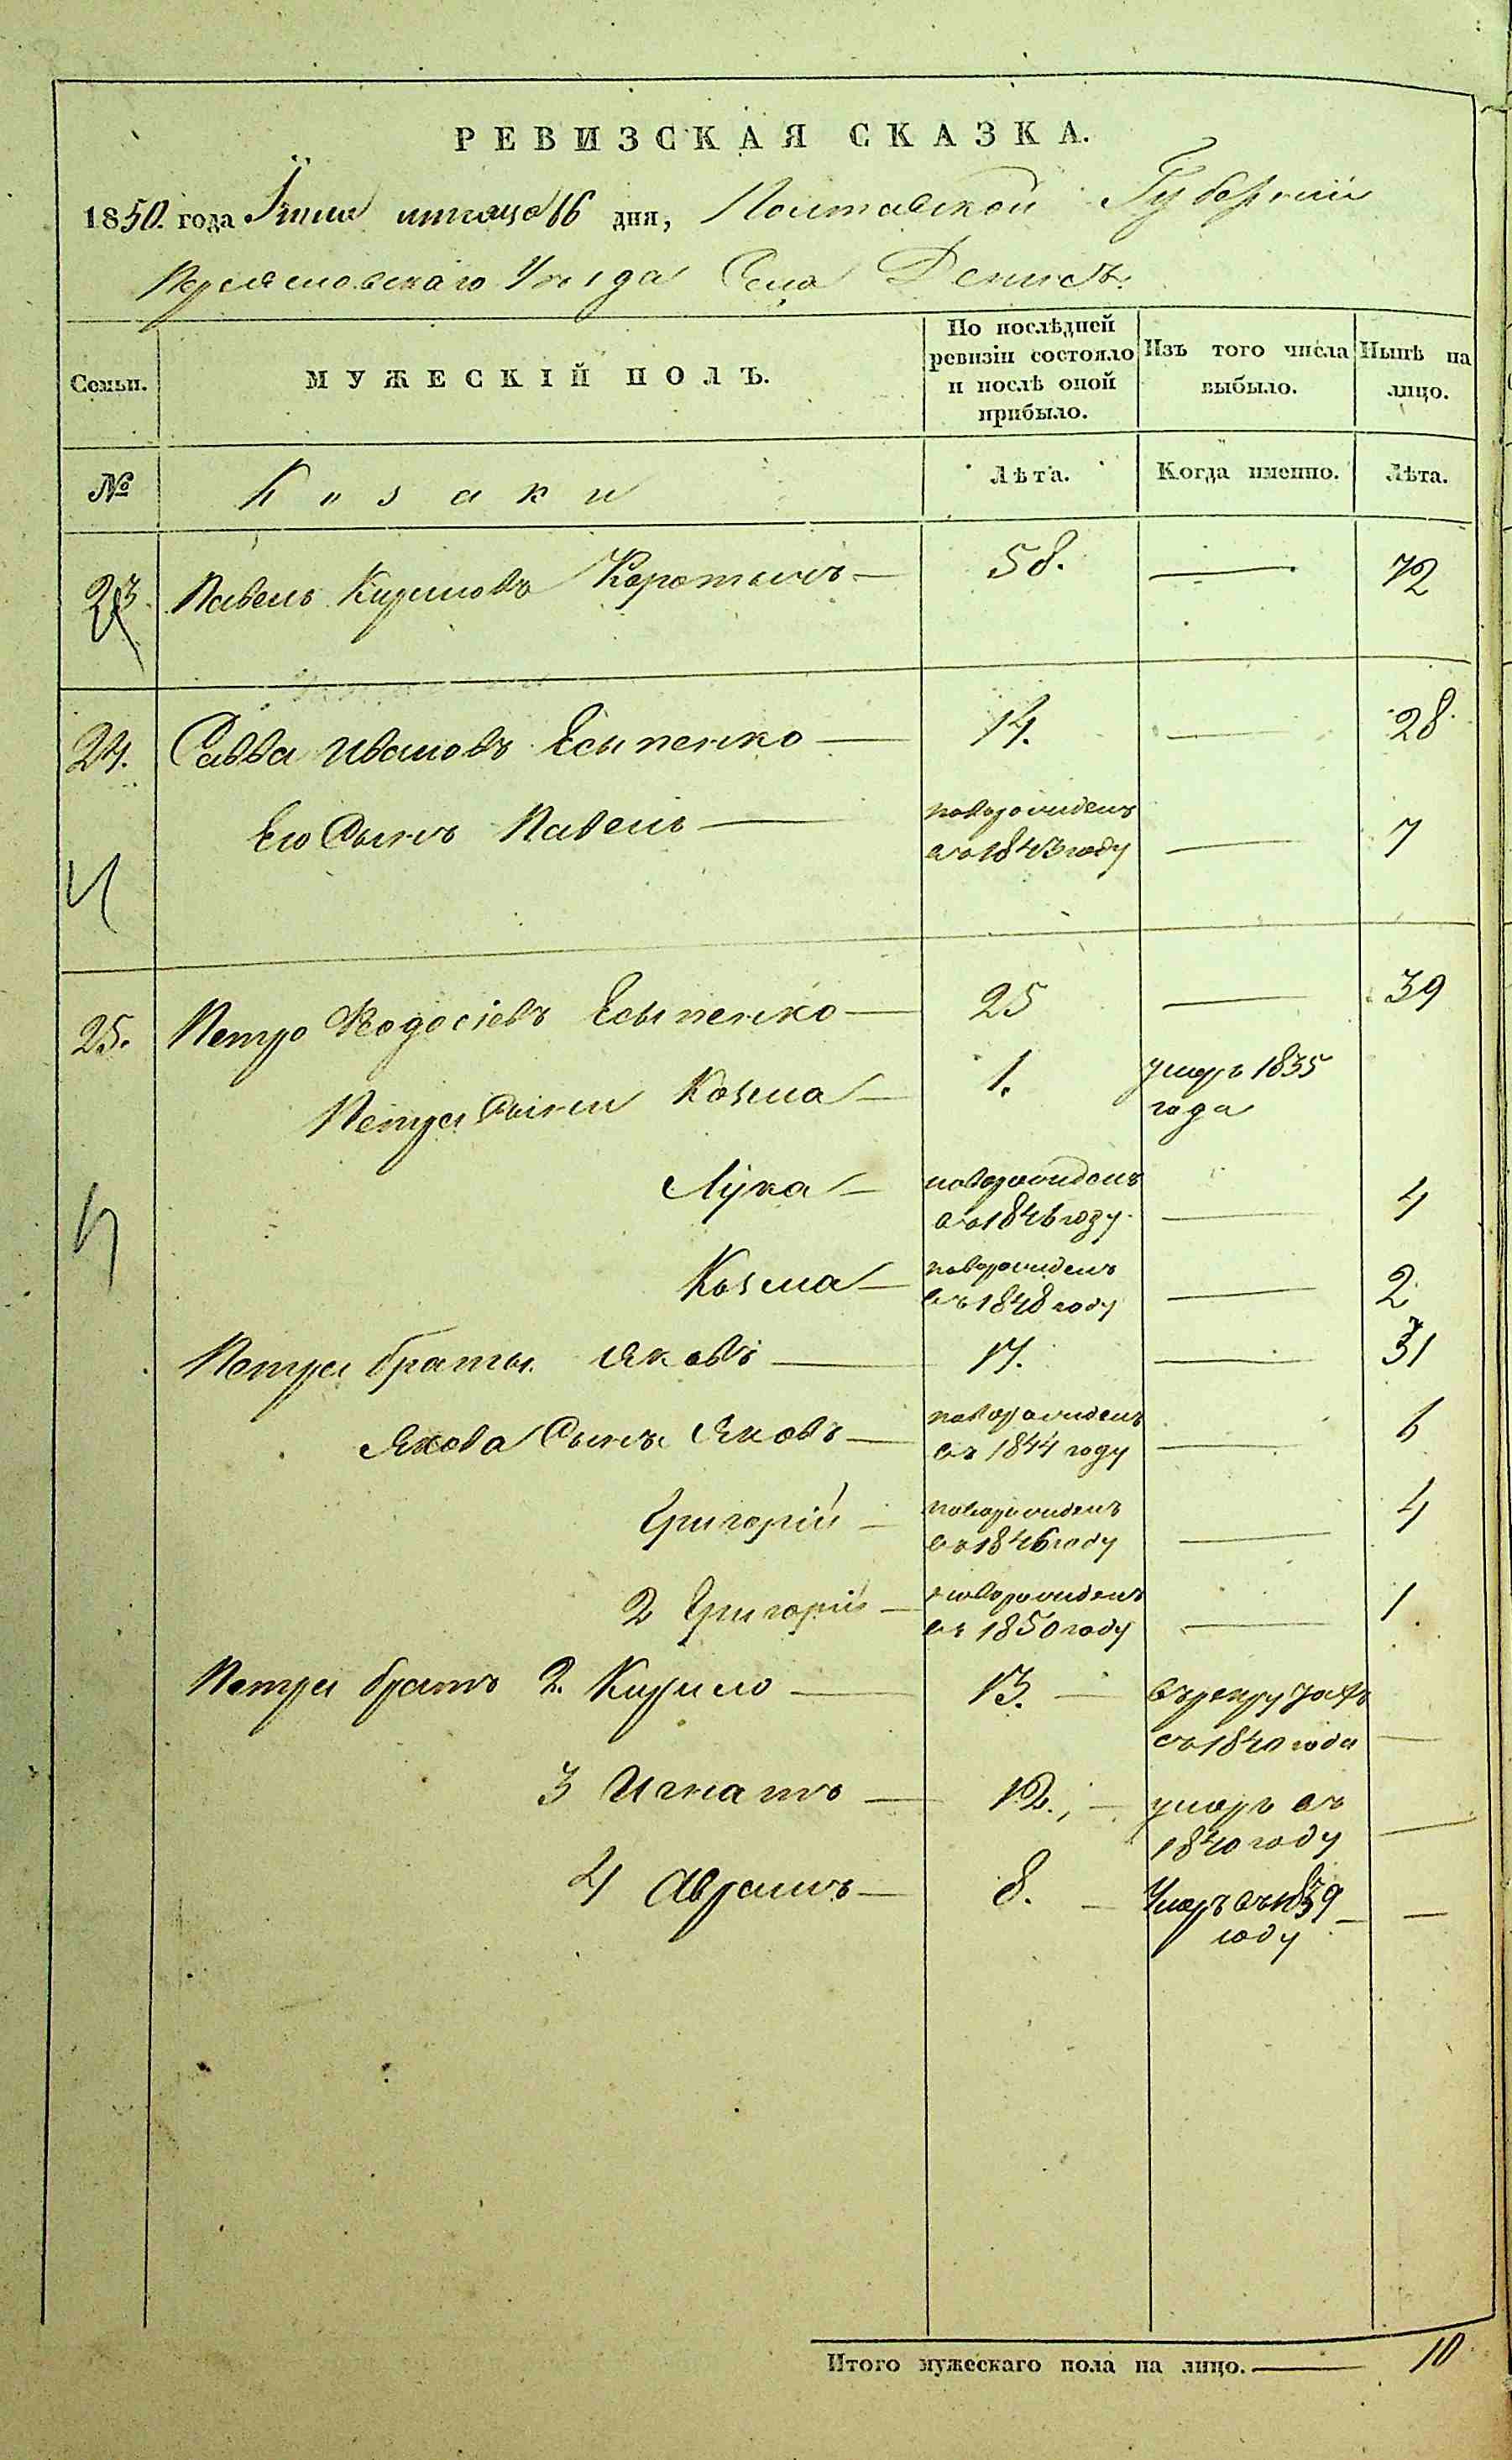 РЕВИЗСКАЯ СКАЗКА.
1850. года Іюня мѣсяца 16 дня, Полтавской Губерніи
Переяславскаго Уѣзда Села Денисъ.
Семьи.
МУЖЕСКІЙ ПОЛЪ.
По послѣдней
ревизіи состояло
и послѣ оной
прибыло.
Изъ того числа
выбыло.
Нынѣ на
лицо.
№
Козаки
Лѣта.
Когда именно.
Лѣта.
23. Павелъ Кириловъ — 58. — 72
24. Савва Ивановъ Есыпенко — 14. — 28
Его Сынъ Павелъ — новорожденъ
въ 1843 году — 7
25. Петро Ѳеодосіевъ Есыпенко — 25 — 39
Петра Сыни Козма — 1. умеръ 1835
года
Лука — новорожденъ
въ 1846 году — 4
Козма — новорожденъ
въ 1848 году — 2
Петра браты Яковъ — 17. — 31
Якова Сынъ Яковъ — новорожденъ
въ 1844 году — 6
Григорій — новорожденъ
въ 1846 году — 4
2 Григорій — новорожденъ
въ 1850 году — 1
Петра братъ 2. Кирило — 13. — въ рекрутахъ
съ 1840 года —
3 Игнатъ — 12. — умеръ въ
1840 году —
4 Аврамъ — 8. — Умеръ въ 1839
году —
Итого мужескаго пола на лицо. — 10